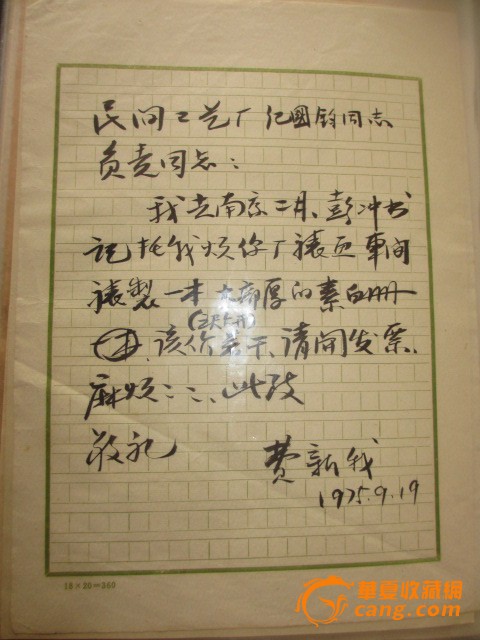 民间工艺厂 纪國鈞同志
负责同志：
我去南京二月、彭冲书
记托我烦你厂裱画車间
裱製一本 大部厚的素白册
该价若干、请開发票、
麻烦：：、此致
敬礼
费新我
1975.9.19
18×20=360
華夏收藏網
cang.com